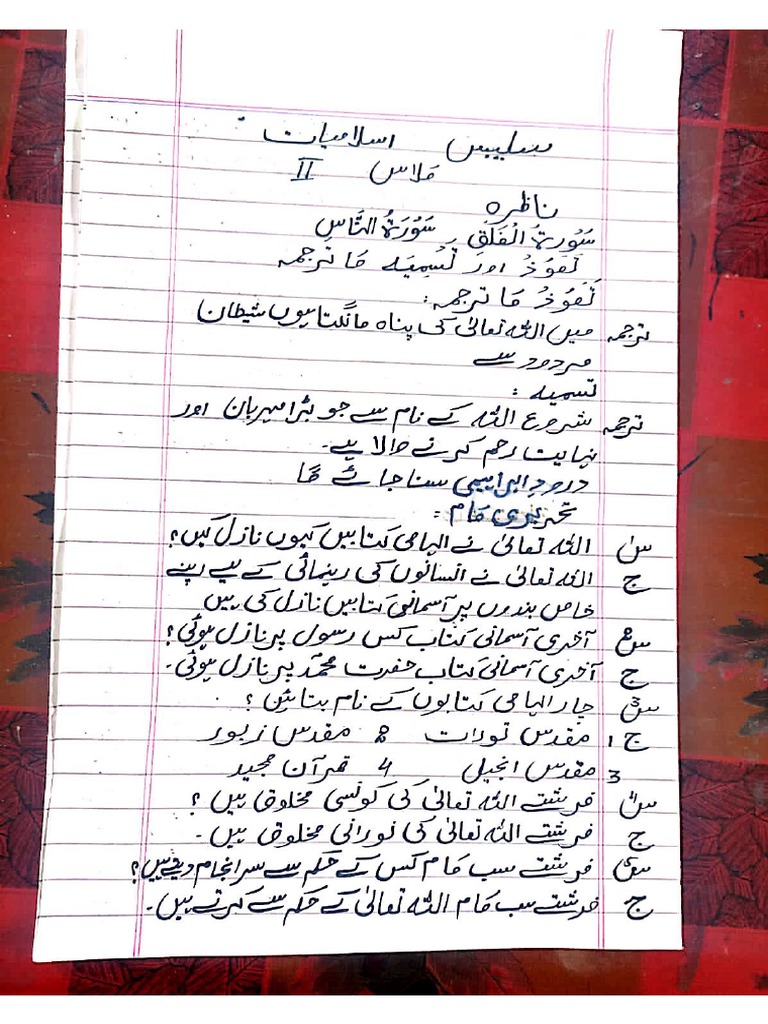 سلیبس اسلامیات
کلاس II
ناظرہ
سُورۃُ الْفَلَقِ ، سُورَۃُ النَّاسِ
تَعَوُّذُ اور تَسْمِیَہ کا ترجمہ
تَعَوُّذُ کا ترجمہ :
ترجمہ میں اللہ تعالیٰ کی پناہ مانگتا ہوں شیطان
مردود سے
تسمیہ :
ترجمہ شروع اللہ کے نام سے جو بڑا مہربان اور
نہایت رحم کرنے والا ہے۔
درودِ ابراہیمی سنا جائے گا
تحریری کام :
س۱ اللہ تعالیٰ نے الہامی کتابیں کیوں نازل کیں؟
ج اللہ تعالیٰ نے انسانوں کی رہنمائی کے لیے اپنے
خاص بندوں پر آسمانی کتابیں نازل کی ہیں
س۲ آخری آسمانی کتاب کس رسول پر نازل ہوئی؟
ج آخری آسمانی کتاب حضرت محمدؐ پر نازل ہوئی۔
س۳ چار الہامی کتابوں کے نام بتائیں ؟
ج 1 مقدس تورات 2 مقدس زبور
3 مقدس انجیل 4 قرآن مجید
س۴ فرشتے اللہ تعالیٰ کی کونسی مخلوق ہیں ؟
ج فرشتے اللہ تعالیٰ کی نورانی مخلوق ہیں ۔
س۵ فرشتے سب کام کس کے حکم سے سرانجام دیتے ہیں؟
ج فرشتے سب کام اللہ تعالیٰ کے حکم سے کرتے ہیں۔